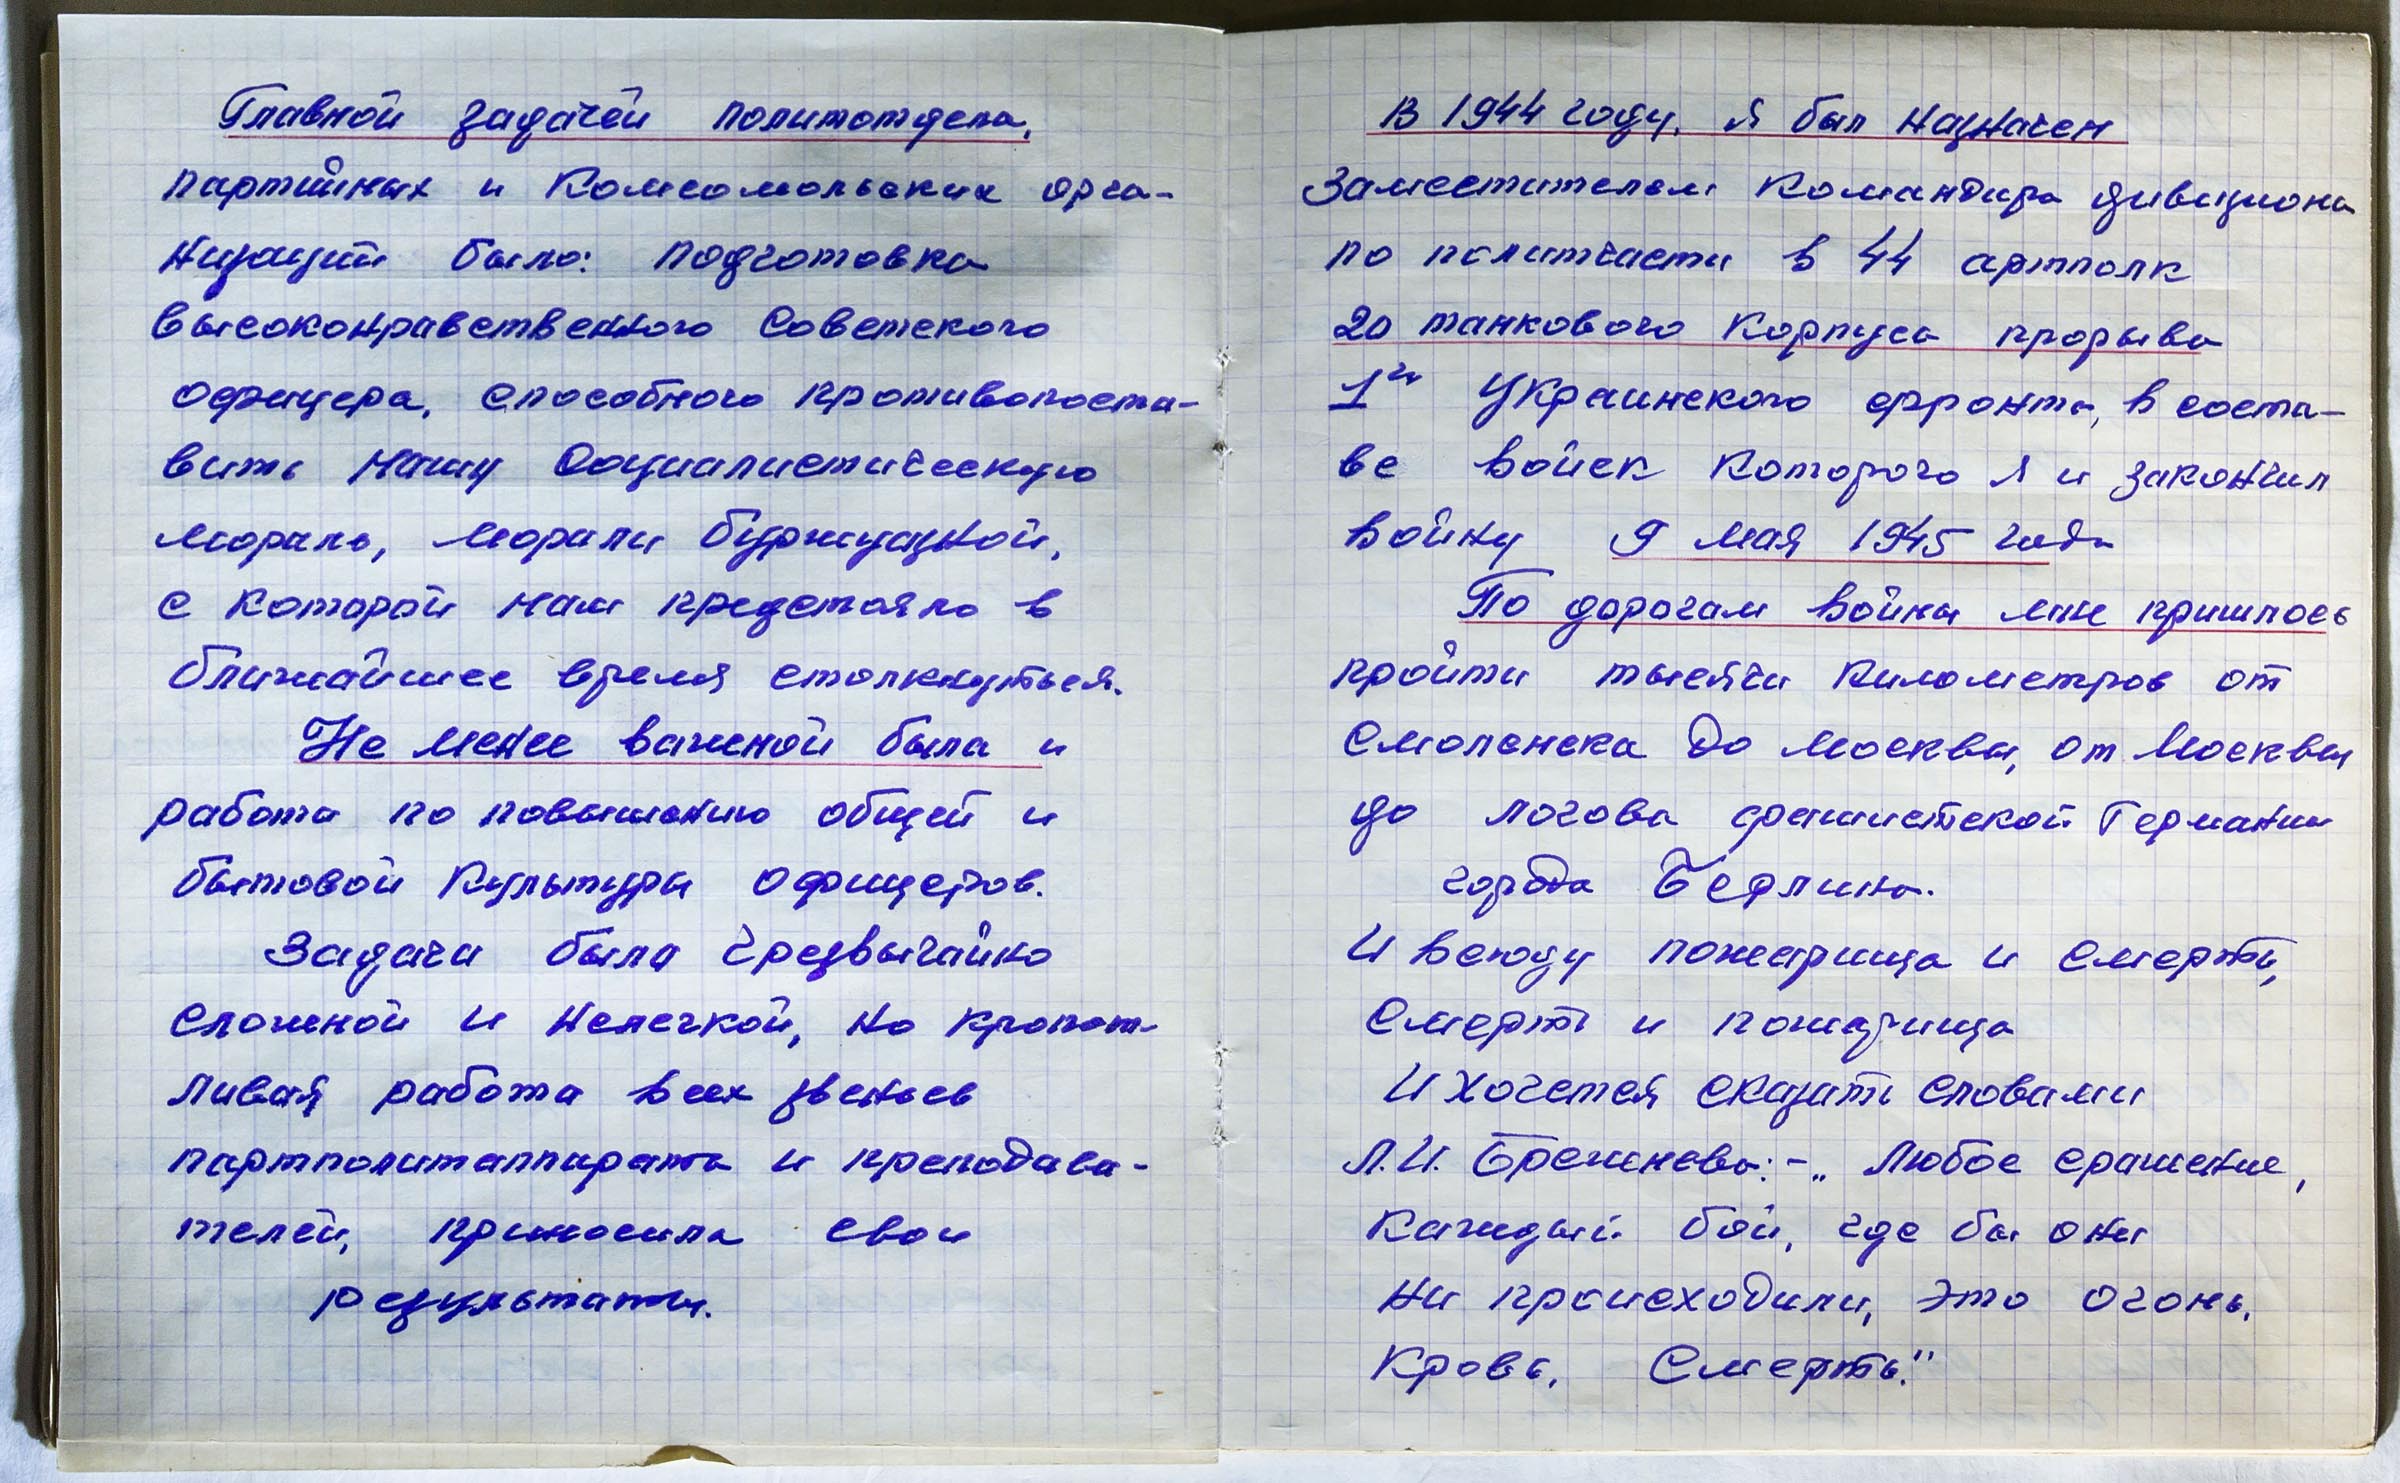 Главной задачей политотдела,
партийных и Комсомольских орга-
низаций было: подготовка
высоконравственного Советского
офицера, способного противопоста-
вить нашу Социалистическую
мораль, морали буржуазной,
с которой нам предстояло в
ближайшее время столкнуться.
Не менее важной была и
работа по повышению общей и
бытовой культуры офицеров.
Задача была чрезвычайно
сложной и нелегкой, но кропот-
ливая работа всех звеньев
партполитаппарата и преподава-
телей, приносила свои
результаты.
В 1944 году, я был назначен
Заместителем Командира дивизиона
по политчасти в 44 артполк
20 танкового Корпуса прорыва
1го Украинского фронта, в соста-
ве войск которого я и закончил
войну 9 мая 1945 года
По дорогам войны мне пришлось
пройти тысячи километров от
Смоленска до Москвы, от Москвы
до логова фашистской Германии
города Берлина.
И всюду пожарища и смерть,
Смерть и пожарища
И хочется сказать словами
Л.И. Брежнева: - „Любое сражение,
Каждый бой, где бы они
ни происходили, это огонь,
Кровь, Смерть."